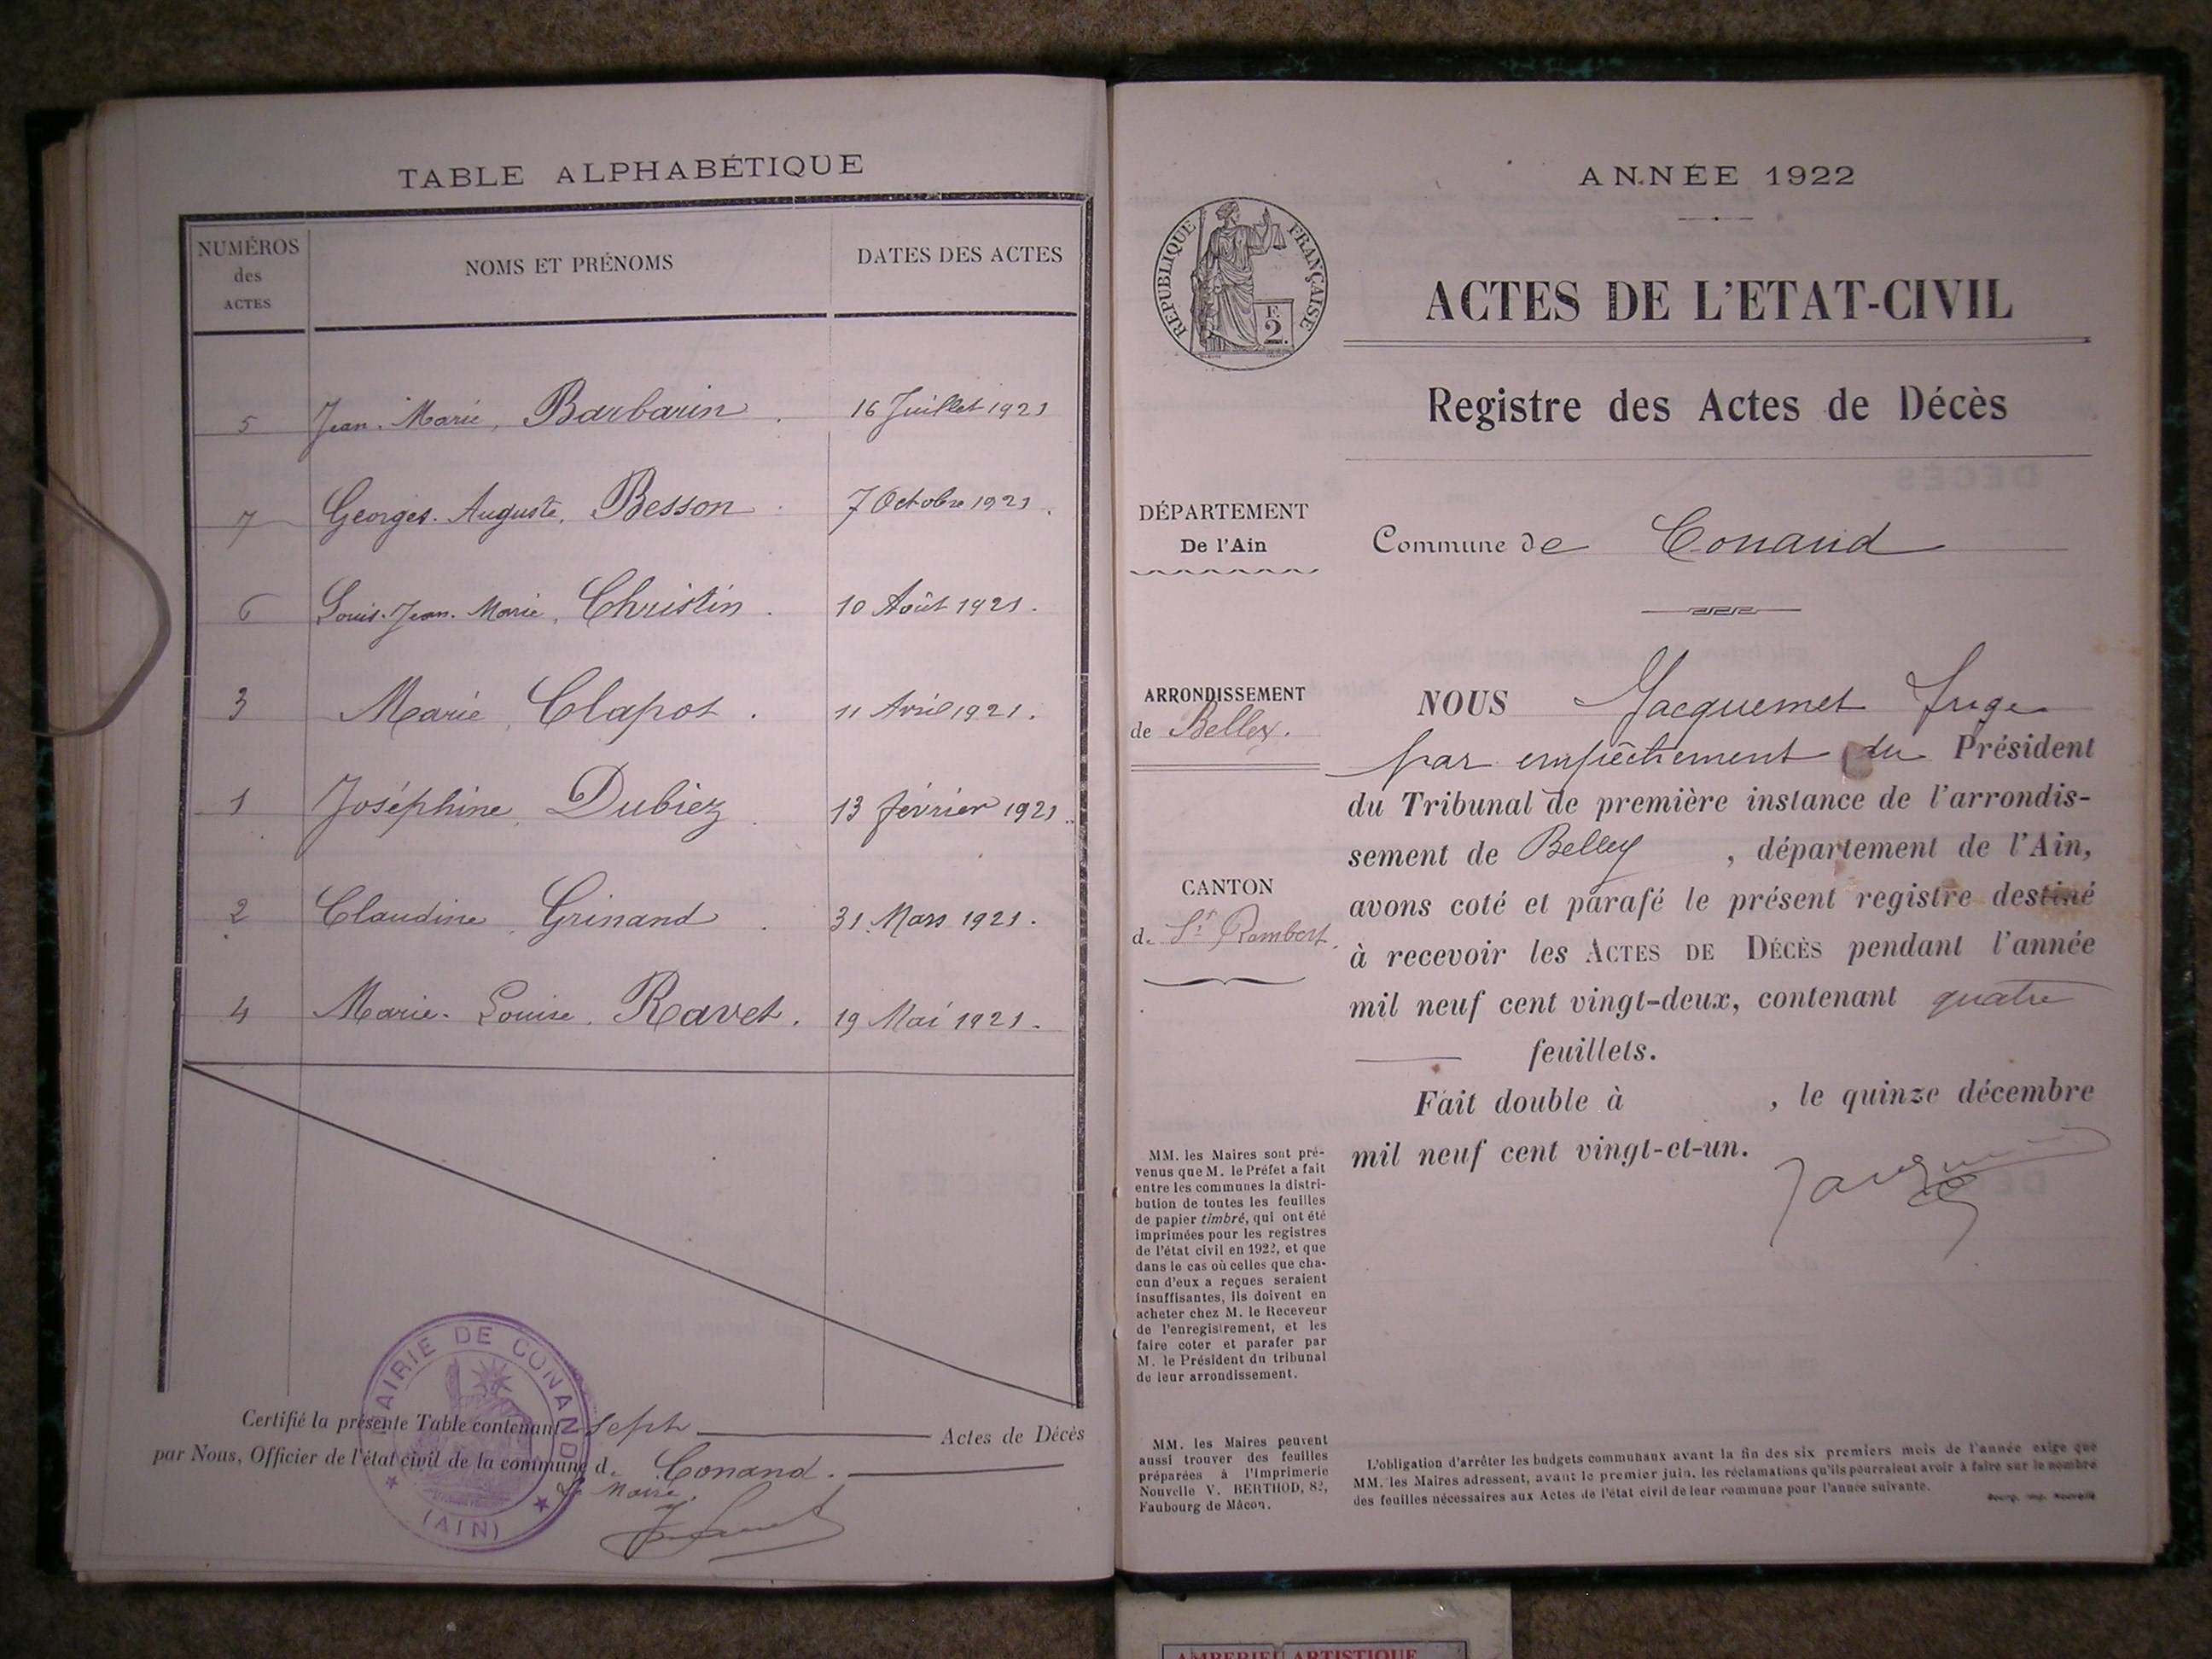 TABLE ALPHABÉTIQUE
NUMÉROS
des
ACTES
NOMS ET PRÉNOMS
DATES DES ACTES
5 Jean-Marie, Barbarin. 16 Juillet 1921
7 Georges-Auguste, Besson. 7 Octobre 1921.
6 Louis-Jean-Marie, Christin. 10 Août 1921.
3 Marie, Clapot. 11 Avril 1921.
1 Joséphine, Dubiez. 13 février 1921.
2 Claudine, Grinand. 31 Mars 1921.
4 Marie-Louise, Ravet. 19 Mai 1921.
Certifié la présente Table contenant sept Actes de Décès
par Nous, Officier de l'état civil de la commune de Conand.
Le Maire,
MAIRIE DE CONAND
(AIN)
ANNÉE 1922
RÉPUBLIQUE FRANÇAISE
F.
2.
ACTES DE L'ETAT-CIVIL
Registre des Actes de Décès
DÉPARTEMENT
De l'Ain
Commune de Conand
ARRONDISSEMENT
de Belley.
CANTON
de St Rambert.
NOUS Jacquemet Juge
par empêchement du Président
du Tribunal de première instance de l'arrondis-
sement de Belley, département de l'Ain,
avons coté et parafé le présent registre destiné
à recevoir les ACTES DE DÉCÈS pendant l'année
mil neuf cent vingt-deux, contenant quatre
feuillets.
Fait double à , le quinze décembre
mil neuf cent vingt-et-un.
MM. les Maires sont pré-
venus que M. le Préfet a fait
entre les communes la distri-
bution de toutes les feuilles
de papier timbré, qui ont été
imprimées pour les registres
de l'état civil en 1922, et que
dans le cas où celles que cha-
cun d'eux a reçues seraient
insuffisantes, ils doivent en
acheter chez M. le Receveur
de l'enregistrement, et les
faire coter et parafer par
M. le Président du tribunal
de leur arrondissement.
MM. les Maires peuvent
aussi trouver des feuilles
préparées à l'Imprimerie
Nouvelle V. BERTHOD, 82,
Faubourg de Mâcon.
L'obligation d'arrêter les budgets communaux avant la fin des six premiers mois de l'année exige que
MM. les Maires adressent, avant le premier juin, les réclamations qu'ils pourraient avoir à faire sur le nombre
des feuilles nécessaires aux Actes de l'état civil de leur commune pour l'année suivante.
Bourg, imp. Nouvelle
AMBERIEU ARTISTIQUE